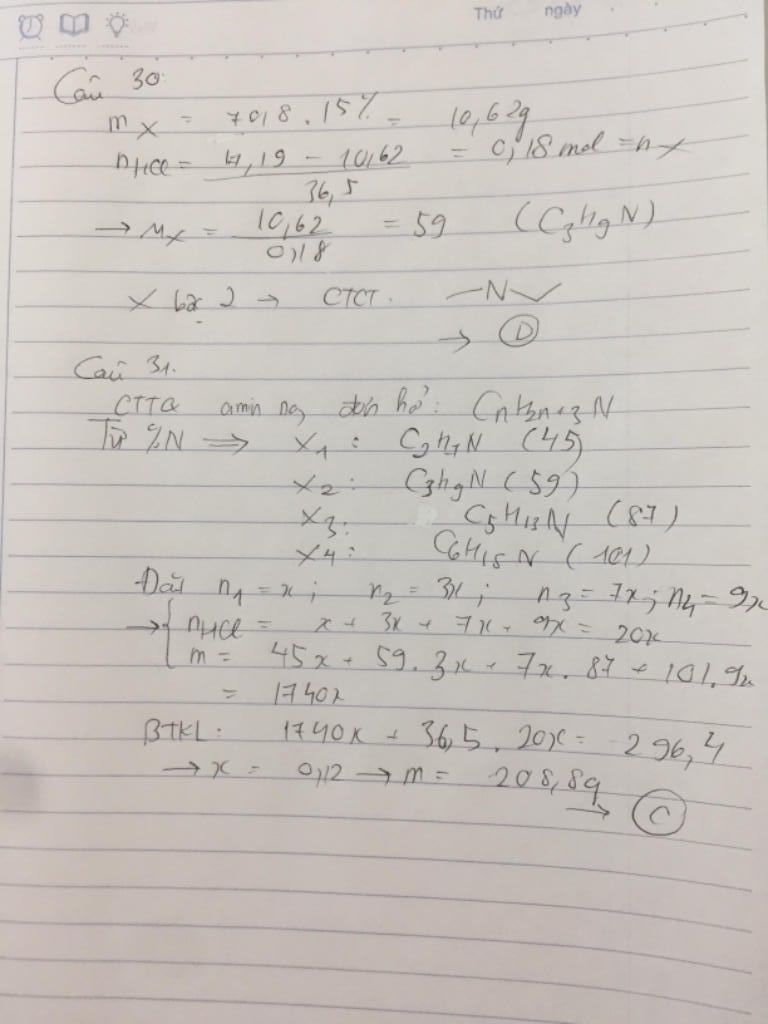 Thứ ngày
Câu 30:
m X = 70,8 . 15% = 10,62g
nHCl = 17,19 - 10,62 / 36,5 = 0,18 mol = nX
→ MX = 10,62 / 0,18 = 59 (C3H9N)
X bậc 2 → CTCT. —N
→ D
Câu 31.
CTTQ amin no, đơn hở: CnH2n+3N
Từ %N ⇒ X1 : C2H7N (45)
X2 : C3H9N (59)
X3 : C5H13N (87)
X4 : C6H15N (101)
Đặt n1 = x ; n2 = 3x ; n3 = 7x ; n4 = 9x
→ { nHCl = x + 3x + 7x + 9x = 20x
m = 45x + 59.3x + 7x.87 + 101.9x
= 1740x
BTKL: 1740x + 36,5 . 20x = 296,4
→ x = 0,12 → m = 208,8g
→ C